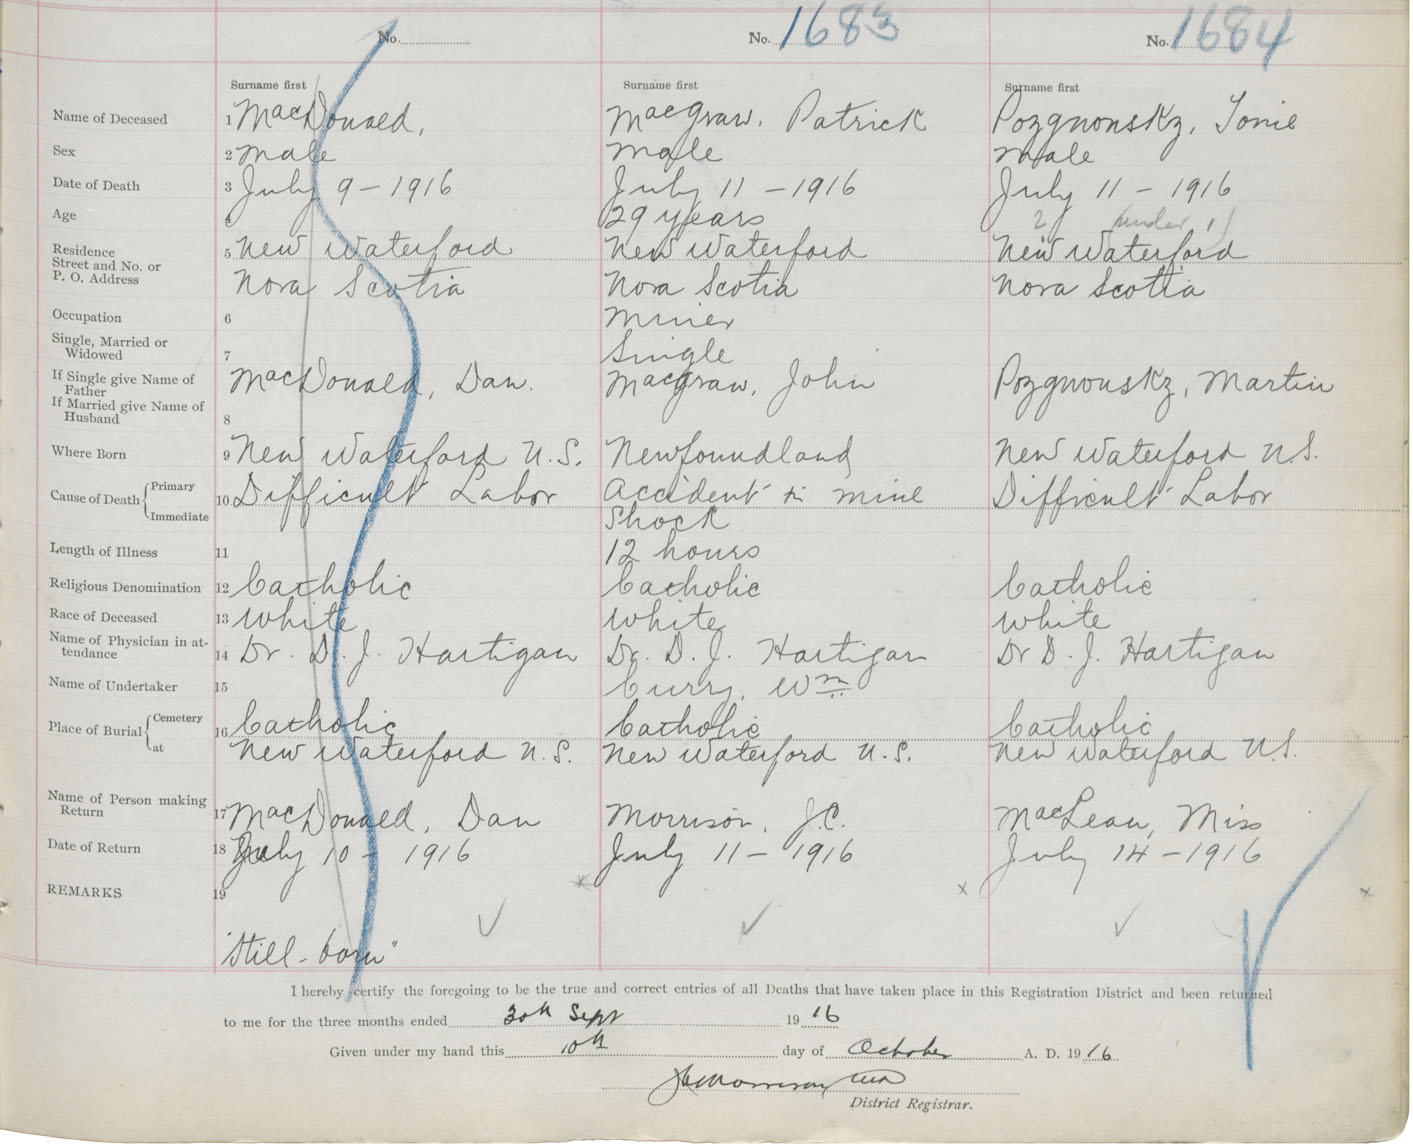 No. No. 1683 No. 1684
Surname first Surname first Surname first
Name of Deceased 1 MacDonald, Macgraw, Patrick Pozgnonskz, Tonie
Sex 2 male male male
Date of Death 3 July 9 - 1916 July 11 - 1916 July 11 - 1916
Age 4 29 years 2 (under 1)
Residence 5 New Waterford New Waterford New Waterford
Street and No. or
P. O. Address Nova Scotia Nova Scotia Nova Scotia
Occupation 6 Miner
Single, Married or
Widowed 7 Single
If Single give Name of
Father MacDonald, Dan. Macgraw, John Pozgnonskz, Martin
If Married give Name of
Husband 8
Where Born 9 New Waterford N.S. Newfoundland New Waterford N.S.
Cause of Death Primary 10 Difficult Labor Accident in mine Difficult Labor
Immediate Shock
Length of Illness 11 12 hours
Religious Denomination 12 Catholic Catholic Catholic
Race of Deceased 13 White White White
Name of Physician in at-
tendance 14 Dr. D. J. Hartigan Dr. D. J. Hartigan Dr D. J. Hartigan
Name of Undertaker 15 Curry, Wm
Place of Burial Cemetery 16 Catholic Catholic Catholic
at New Waterford N.S. New Waterford N.S. New Waterford N.S.
Name of Person making
Return 17 MacDonald, Dan Morrison, J.C. MacLean, Miss
Date of Return 18 July 10 - 1916 July 11 - 1916 July 14 - 1916
REMARKS 19
"Still-born"
I hereby certify the foregoing to be the true and correct entries of all Deaths that have taken place in this Registration District and been returned
to me for the three months ended 30th Sept 19 16
Given under my hand this 10th day of October A. D. 19 16
Morrison
District Registrar.